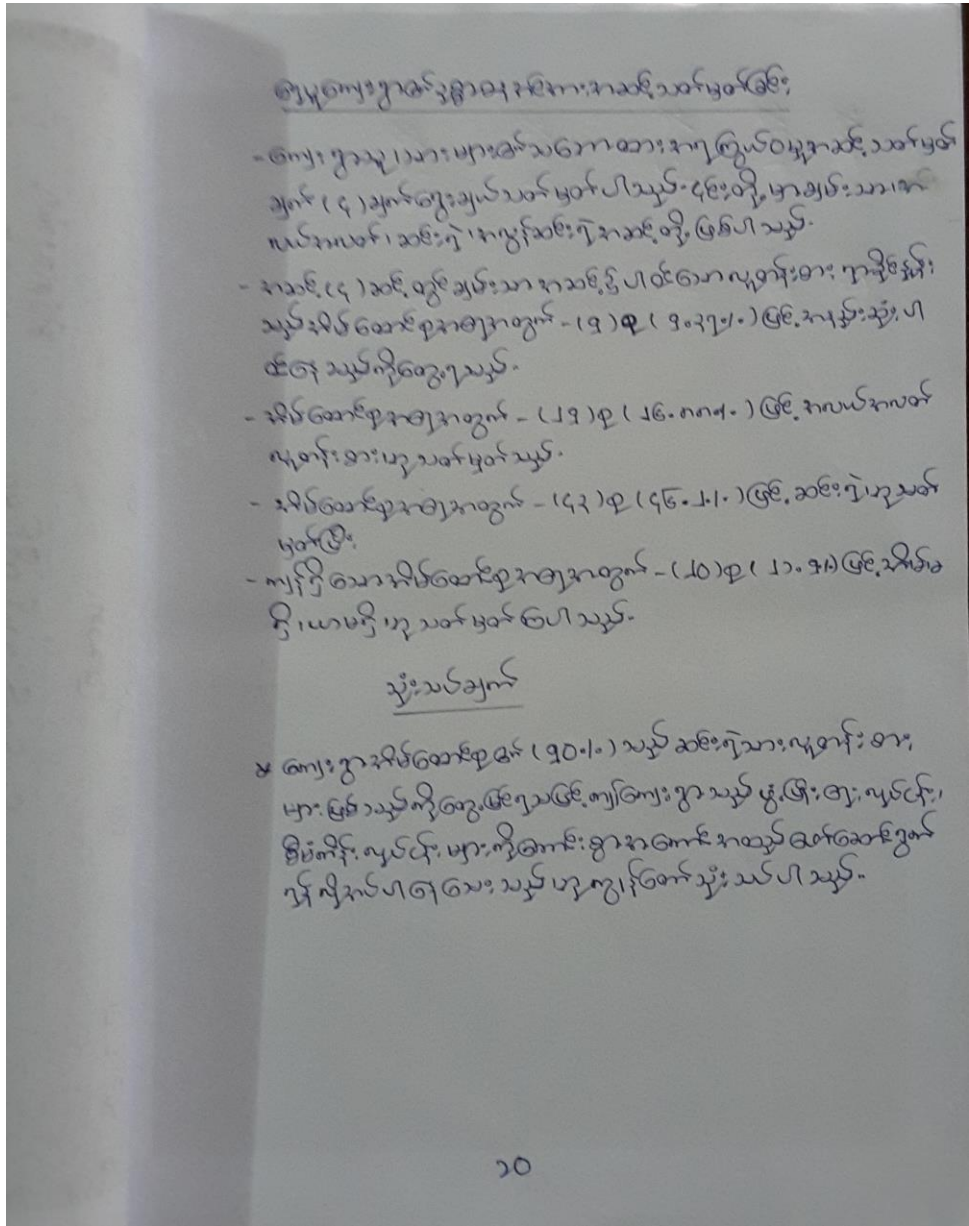 ကျေးရွာ သတ်မှတ်ခြင်း
- ကျေးရွာသူ၊သားများ၏သဘောထားအရကြွယ်ဝမှုအဆင့်သတ်မှတ်
ချက် (၄) ချက်ရွေးချယ်သတ်မှတ်ပါသည်. ၎င်းတို့မှာချမ်းသာ၊အ
လယ်အလတ်၊ဆင်းရဲ၊အလွန်ဆင်းရဲအဆင့်တို့ဖြစ်ပါသည်.
- အဆင့် (၄) ဆင့်တွင်ချမ်းသာအဆင့်၌ပါဝင်သောလူတန်းစား
သည်အိမ်ထောင်စုအရေအတွက် - (၆) စု ဖြင့်အနည်းဆုံးပါ
ဝင်နေသည်ကိုတွေ့ရသည်.
- အိမ်ထောင်စုအရေအတွက် - (၂၆) စု ဖြင့်အလယ်အလတ်
လူတန်းစားဟုသတ်မှတ်သည်.
- အိမ်ထောင်စုအရေအတွက် - (၄၃) စု ဖြင့်ဆင်းရဲဟုသတ်
မှတ်ပြီး
- ကျန်ရှိသောအိမ်ထောင်စုအရေအတွက် - (၂၀) စု ဖြင့်အိမ်မ
ရှိ၊ယာမရှိဟုသတ်မှတ်ပေပါသည်.
သုံးသပ်ချက်
* ကျေးရွာအိမ်ထောင်စု၏ (၇၀%) သည်ဆင်းရဲသားလူတန်းစား
များဖြစ်သည်ကိုတွေ့မြင်ရသဖြင့်ဤကျေးရွာသည်ဖွံ့ဖြိုးရေးလုပ်ငန်း၊
စီမံကိန်းလုပ်ငန်းများကိုကောင်းစွာအကောင်အထည်ဖော်ဆောင်ရွက်
ရန်လိုအပ်ပါနေသေးသည်ဟုကျွန်တော်သုံးသပ်ပါသည်.
၁၀